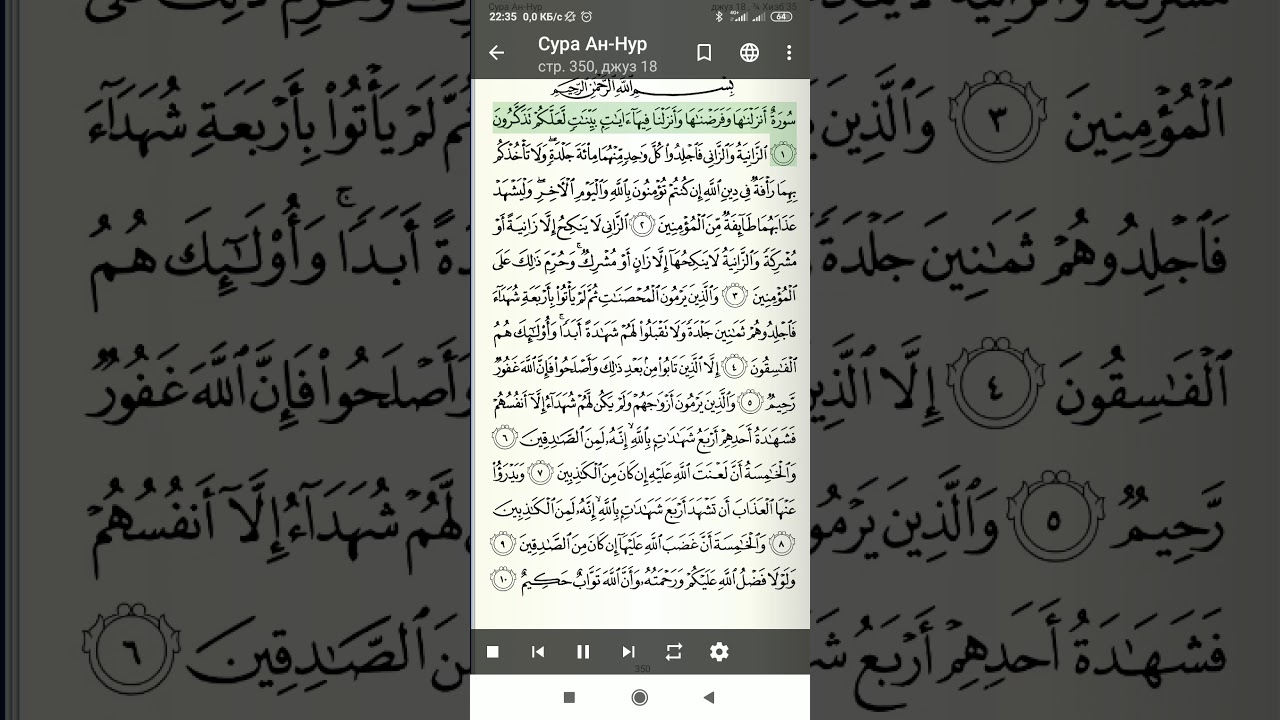 Сура Ан-Нур джуз 18, ¾ Хизб 35
22:35 0,0 КБ/с 4G+ 64
Сура Ан-Нур
стр. 350, джуз 18
بِسْمِ ٱللَّهِ ٱلرَّحْمَٰنِ ٱلرَّحِيمِ
سُورَةٌ أَنزَلْنَٰهَا وَفَرَضْنَٰهَا وَأَنزَلْنَا فِيهَآ ءَايَٰتٍۭ بَيِّنَٰتٍ لَّعَلَّكُمْ تَذَكَّرُونَ
١ ٱلزَّانِيَةُ وَٱلزَّانِى فَٱجْلِدُوا۟ كُلَّ وَٰحِدٍ مِّنْهُمَا مِا۟ئَةَ جَلْدَةٍ ۖ وَلَا تَأْخُذْكُم
بِهِمَا رَأْفَةٌ فِى دِينِ ٱللَّهِ إِن كُنتُمْ تُؤْمِنُونَ بِٱللَّهِ وَٱلْيَوْمِ ٱلْءَاخِرِ ۖ وَلْيَشْهَدْ
عَذَابَهُمَا طَآئِفَةٌ مِّنَ ٱلْمُؤْمِنِينَ ٢ ٱلزَّانِى لَا يَنكِحُ إِلَّا زَانِيَةً أَوْ
مُشْرِكَةً وَٱلزَّانِيَةُ لَا يَنكِحُهَآ إِلَّا زَانٍ أَوْ مُشْرِكٌ ۚ وَحُرِّمَ ذَٰلِكَ عَلَى
ٱلْمُؤْمِنِينَ ٣ وَٱلَّذِينَ يَرْمُونَ ٱلْمُحْصَنَٰتِ ثُمَّ لَمْ يَأْتُوا۟ بِأَرْبَعَةِ شُهَدَآءَ
فَٱجْلِدُوهُمْ ثَمَٰنِينَ جَلْدَةً وَلَا تَقْبَلُوا۟ لَهُمْ شَهَٰدَةً أَبَدًا ۚ وَأُو۟لَٰٓئِكَ هُمُ
ٱلْفَٰسِقُونَ ٤ إِلَّا ٱلَّذِينَ تَابُوا۟ مِنۢ بَعْدِ ذَٰلِكَ وَأَصْلَحُوا۟ فَإِنَّ ٱللَّهَ غَفُورٌ
رَّحِيمٌ ٥ وَٱلَّذِينَ يَرْمُونَ أَزْوَٰجَهُمْ وَلَمْ يَكُن لَّهُمْ شُهَدَآءُ إِلَّآ أَنفُسُهُمْ
فَشَهَٰدَةُ أَحَدِهِمْ أَرْبَعُ شَهَٰدَٰتٍۭ بِٱللَّهِ ۙ إِنَّهُۥ لَمِنَ ٱلصَّٰدِقِينَ ٦
وَٱلْخَٰمِسَةُ أَنَّ لَعْنَتَ ٱللَّهِ عَلَيْهِ إِن كَانَ مِنَ ٱلْكَٰذِبِينَ ٧ وَيَدْرَؤُا۟
عَنْهَا ٱلْعَذَابَ أَن تَشْهَدَ أَرْبَعَ شَهَٰدَٰتٍۭ بِٱللَّهِ ۙ إِنَّهُۥ لَمِنَ ٱلْكَٰذِبِينَ
٨ وَٱلْخَٰمِسَةَ أَنَّ غَضَبَ ٱللَّهِ عَلَيْهَآ إِن كَانَ مِنَ ٱلصَّٰدِقِينَ ٩
وَلَوْلَا فَضْلُ ٱللَّهِ عَلَيْكُمْ وَرَحْمَتُهُۥ وَأَنَّ ٱللَّهَ تَوَّابٌ حَكِيمٌ ١٠
350
ٱلْمُؤْمِنِينَ ٣ وَٱلَّذِينَ
لَمْ يَأْتُوا۟ بِأَرْبَعَةِ شُهَدَآءَ
فَٱجْلِدُوهُمْ ثَمَٰنِينَ جَلْدَةً
أَبَدًا ۚ وَأُو۟لَٰٓئِكَ هُمُ
ٱلْفَٰسِقُونَ ٤ إِلَّا
وَأَصْلَحُوا۟ فَإِنَّ ٱللَّهَ غَفُورٌ
رَّحِيمٌ ٥ وَٱلَّذِينَ
لَّهُمْ شُهَدَآءُ إِلَّآ أَنفُسُهُمْ
فَشَهَٰدَةُ أَحَدِهِمْ أَرْبَعُ
ٱلصَّٰدِقِينَ ٦